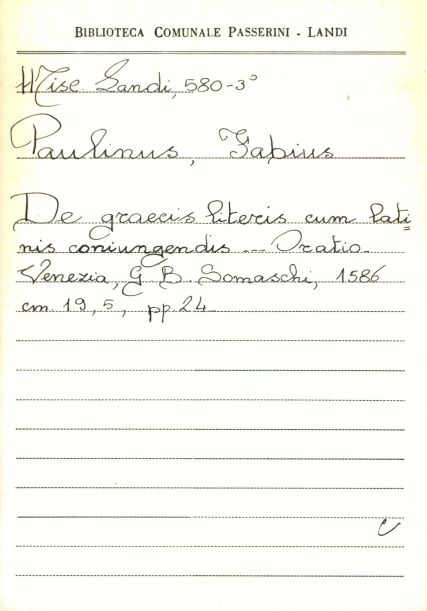 BIBLIOTECA COMUNALE PASSERINI - LANDI
Misc. Landi, 580-3°
Paulinus, Fabius
De graecis literis cum lati=
nis coniungendis ... Oratio.
Venezia, G. B. Somaschi, 1586
cm. 19,5, pp. 24